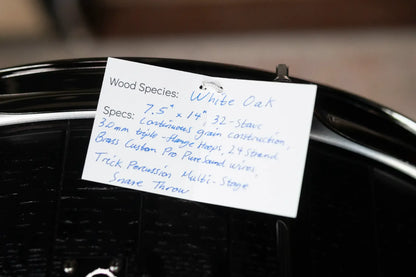 Wood Species: White Oak
Specs: 7.5" x 14", 32-Stave
Continuous grain construction,
3.0mm triple-flange Hoops, 24 Strand
Brass Custom Pro PureSound wires,
Trick Percussion Multi-Stage
Snare Throw